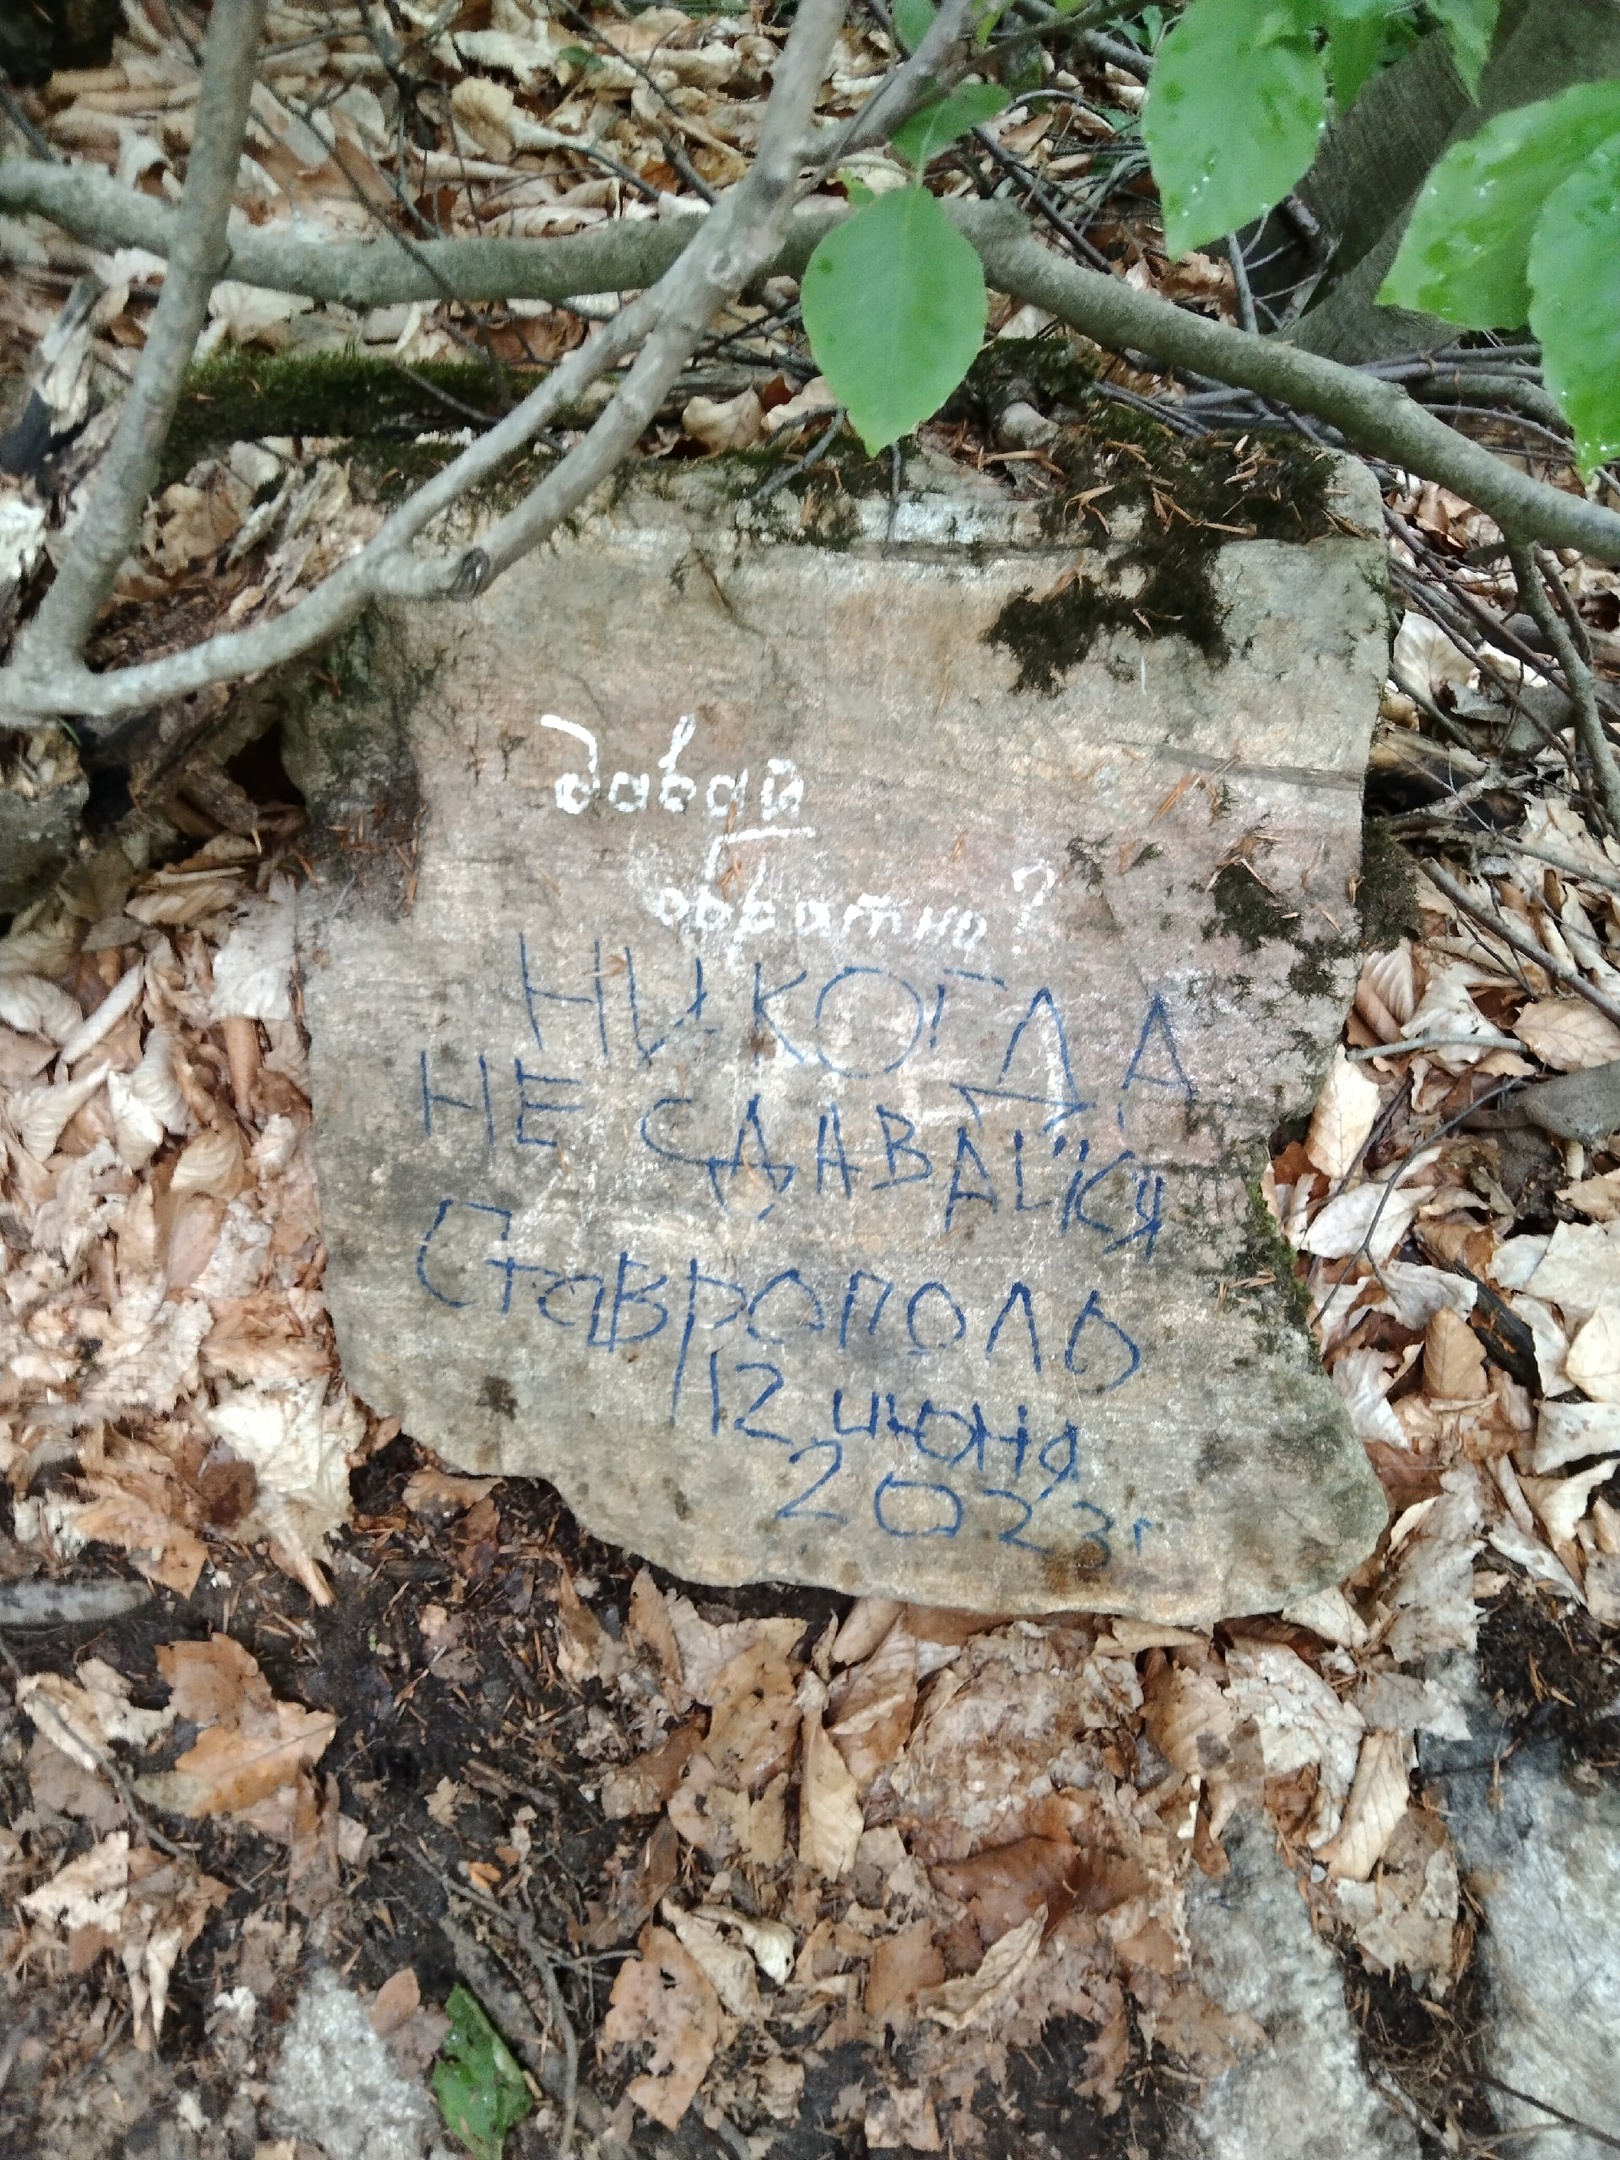 давай
обратно?
НИКОГДА
НЕ СДАВАЙСЯ
Ставрополь
12 июня
2023г